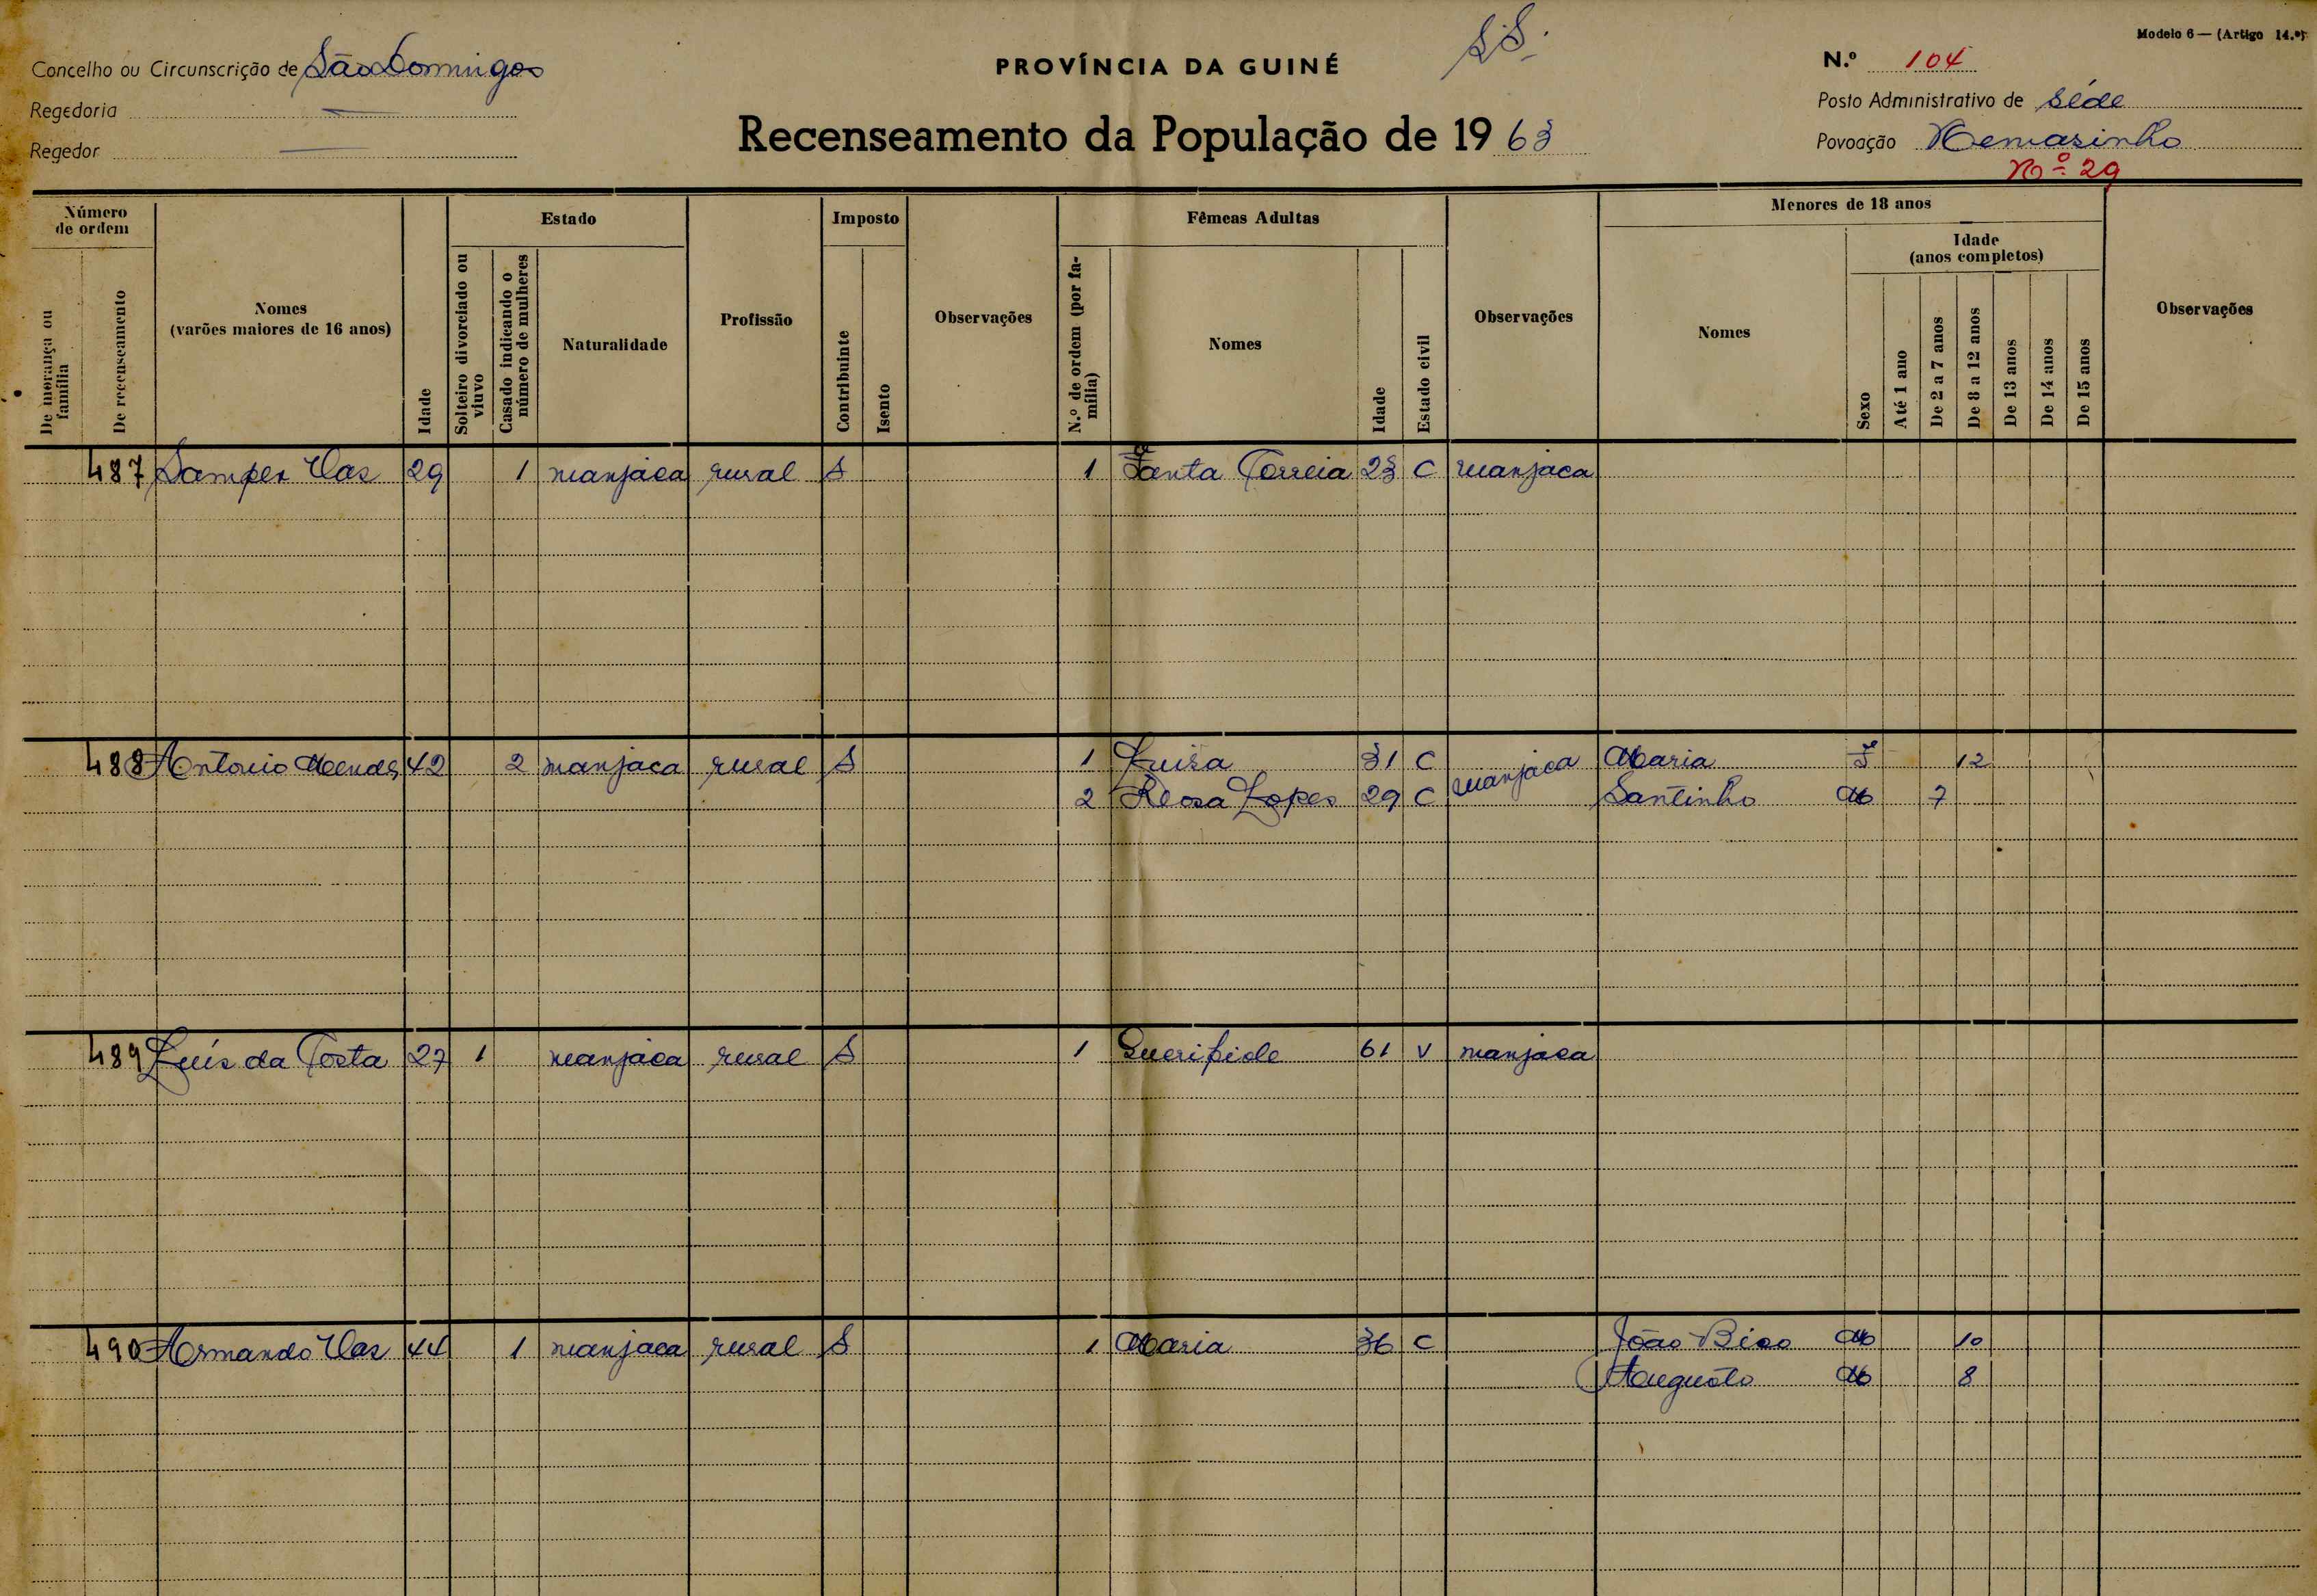 S.S.
Modelo 6 — (Artigo 14.º)
Concelho ou Circunscrição de São Domingos
PROVÍNCIA DA GUINÉ
N.º 104
Regedoria —
Posto Administrativo de Séde
Regedor —
Recenseamento da População de 1963
Povoação
Nº 29
Número de ordem
De morança ou família
De recenseamento
Nomes (varões maiores de 16 anos)
Idade
Estado
Solteiro divorciado ou viuvo
Casado indicando o número de mulheres
Naturalidade
Profissão
Imposto
Contribuinte
Isento
Observações
Fêmeas Adultas
N.º de ordem (por família)
Nomes
Idade
Estado civil
Observações
Menores de 18 anos
Nomes
Sexo
Idade (anos completos)
Até 1 ano
De 2 a 7 anos
De 8 a 12 anos
De 13 anos
De 14 anos
De 15 anos
Observações
487 Samper Vaz 29 1 manjaca rural S 1 Santa Correia 23 C manjaca
488 Antonio Mendes 42 2 manjaca rural S 1 Luisa 31 C manjaca Maria F 12
2 Rosa Lopes 29 C Santinho M 7
489 Luís da Costa 27 1 manjaca rural S 1 61 V manjaca
490 Armando Vaz 44 1 manjaca rural S 1 Maria 36 C João M 10
Augusto M 8